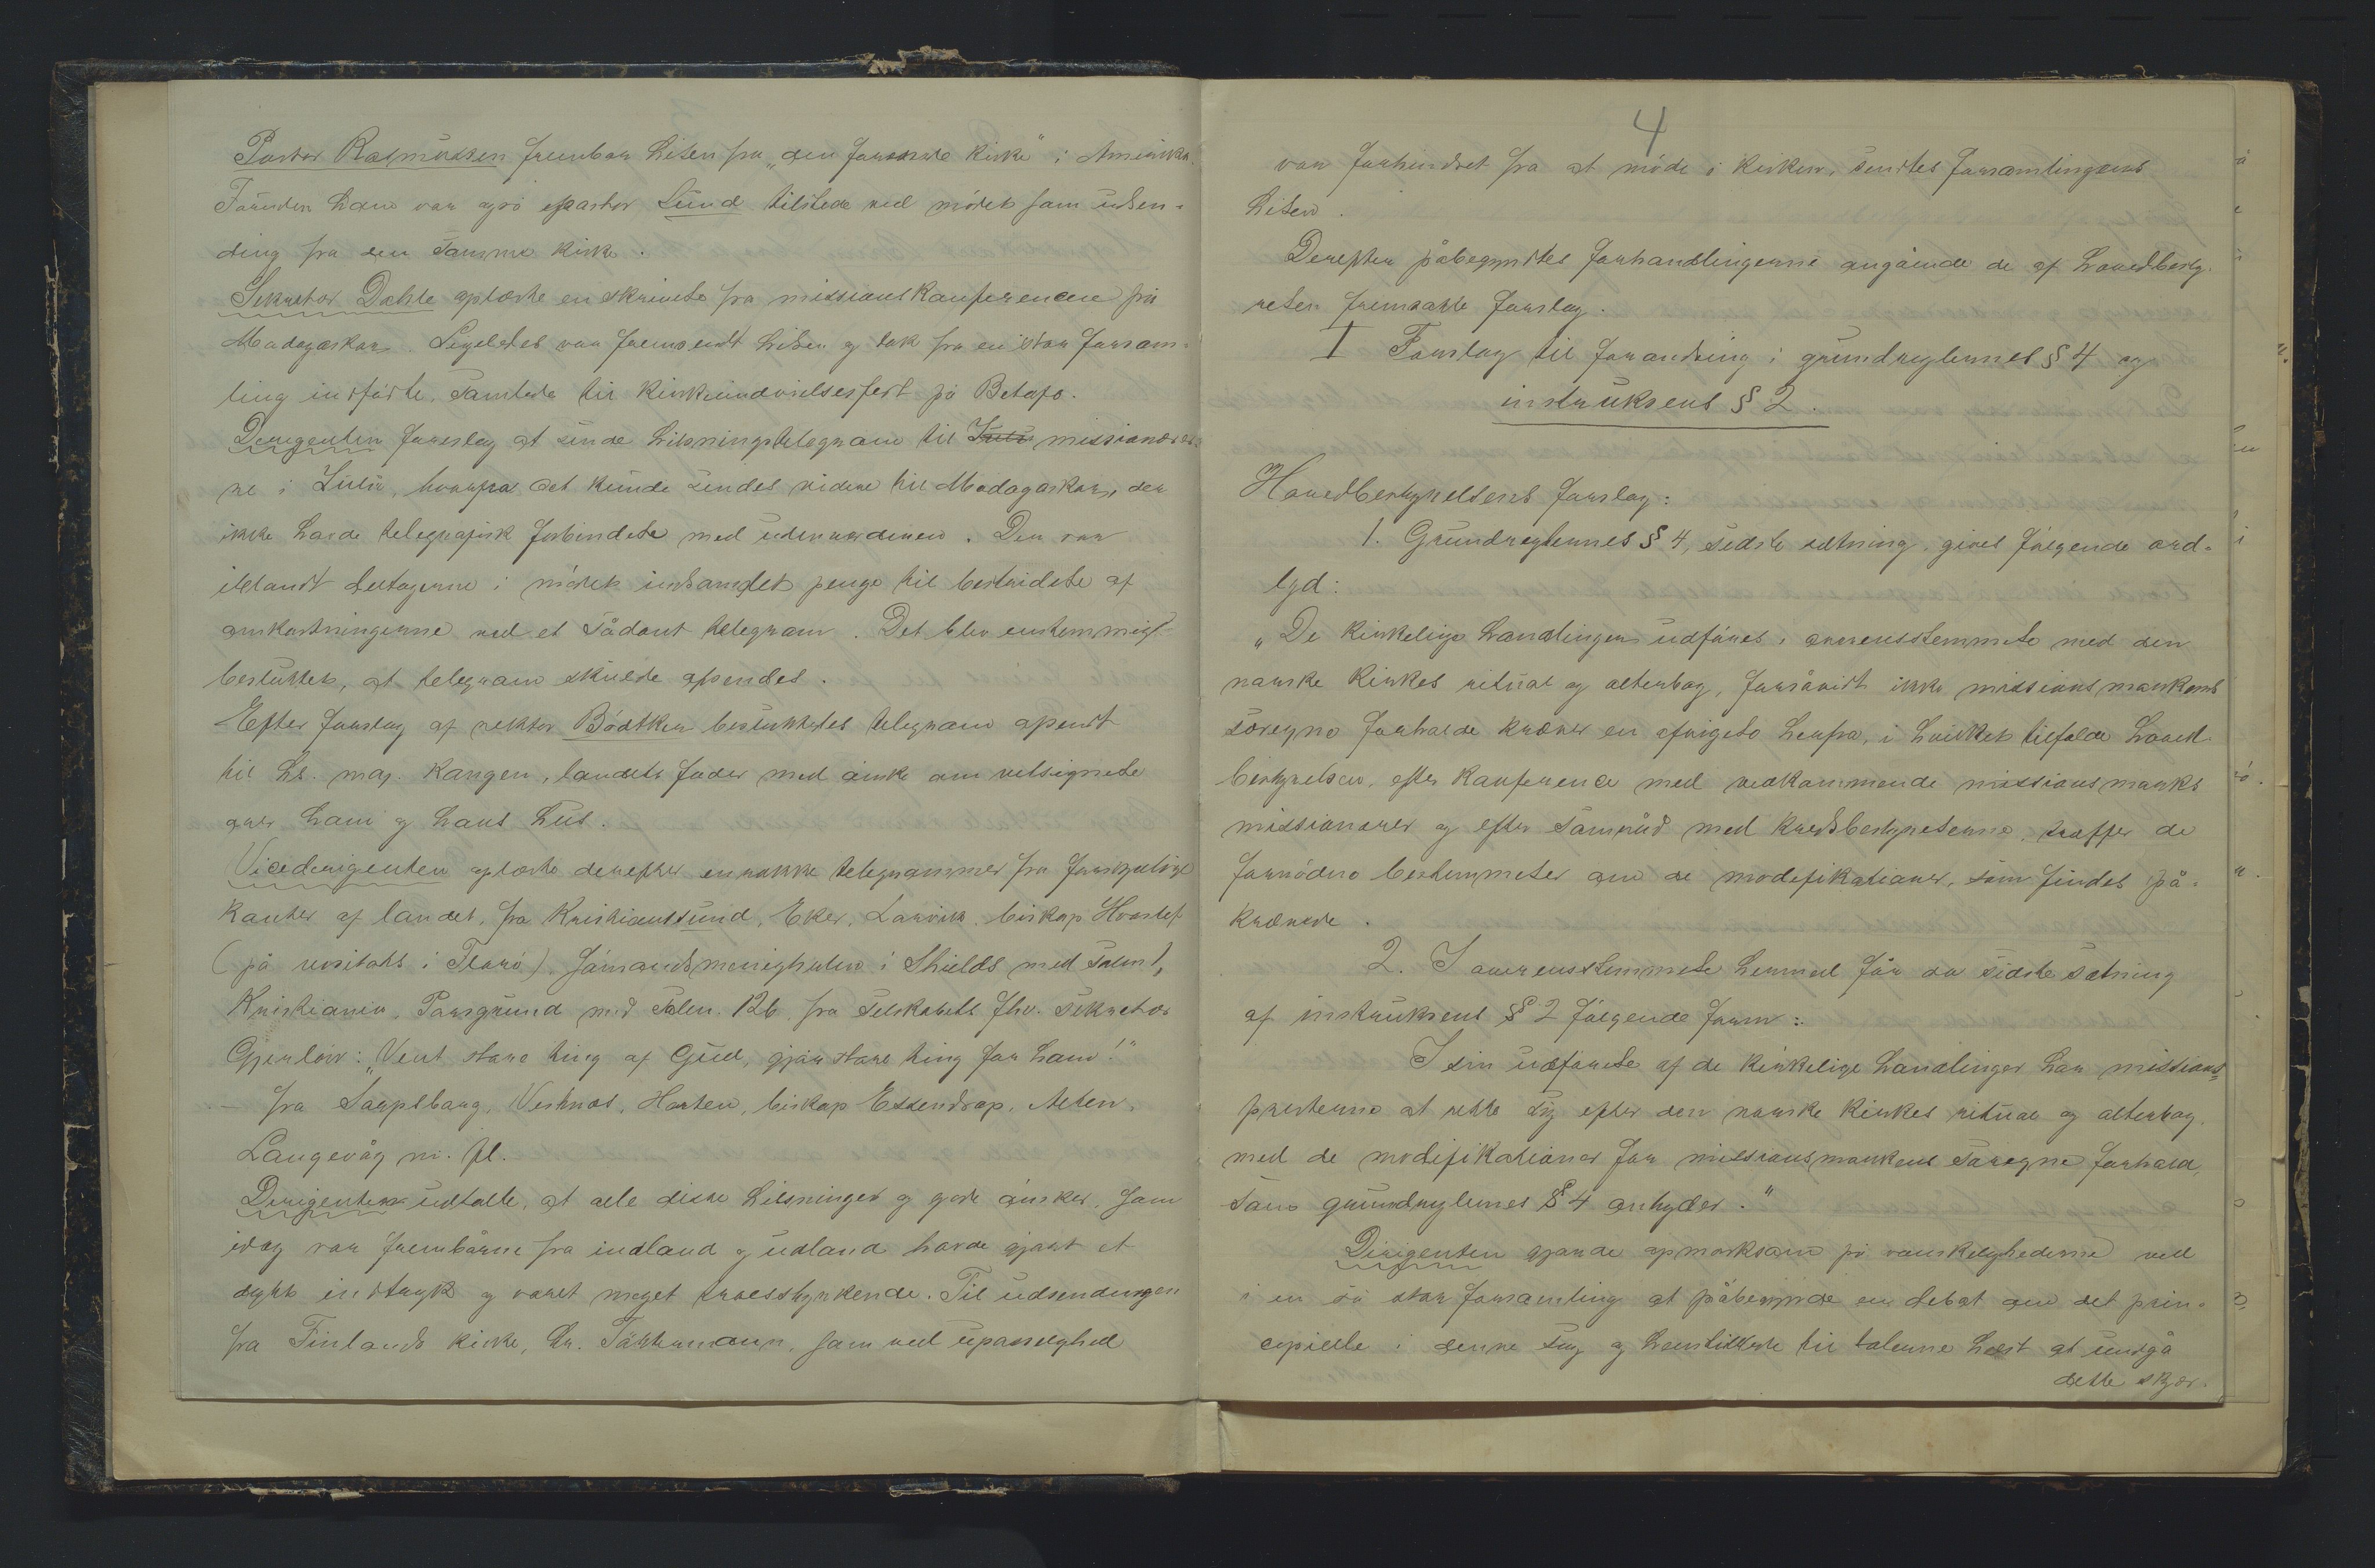 Pastor Rasmussen frembar hilsen fra „den forenede kirke" i Amerika.
Foruden ham var også pastor Lund tilstede ved mödet som udsen-
ding fra den samme kirke.
Sekretær Dahle oplæste en skrivelse fra missionskonferencen på
Madagaskar. Ligeledes var fremsendt hilsen og tak fra en stor forsam-
ling indfödte, samlede til kirkeindvielsesfest på Betafo.
Dirigenten foreslog at sende hilsningstelegram til missionærer-
ne i Zulu, hvorfra det kunde sendes videre til Madagaskar, der
ikke havde telegrafisk forbindelse med udenverdenen. Der var
iblandt deltagerne i mödet indsamlet penge til bestridelse af
omkostningerne ved et sådant telegram. Det blev enstemmigt
besluttet, at telegram skulde afsendes.
Efter forslag af rektor Bödtker besluttedes telegram afsendt
til hs. maj. kongen, landets fader med önske om velsignelse
over ham og hans hus.
Vicedirigenten oplæste derefter en række telegrammer fra forskjellige
kanter af landet, fra Kristianssund, Eker, Larvik, biskop Hvoslef
(på visitats i Tromsö), sömandsmenigheden i Shields med salm.,
Kristiania, Porsgrund med salm. 126, fra selskabets fhv. sekretær
Gjerlöw: „Vent store ting af Gud, gjör store ting for ham!"
— fra Sarpsborg, Vestnæs, Horten, biskop Essendrop, Alten,
Langevåg m. fl.
Dirigenten udtalte, at alle disse hilsninger og gode önsker, som
idag var frembårne fra indland og udland havde gjort et
dybt indtryk og været meget trosstyrkende. Til udsendingen
fra Finlands kirke, hr. Tötterman, som ved upasselighed
4
var forhindret fra at möde i kirken, sendtes forsamlingens
hilsen.
Derefter påbegyndtes forhandlingerne angående de af hovedbesty-
relsen fremsatte forslag.
I Forslag til forandring i grundreglernes § 4 og
instruksens § 2.
Hovedbestyrelsens forslag:
1. Grundreglernes § 4, sidste sætning, gives fölgende ord-
lyd:
„De kirkelige handlinger udföres i overensstemmelse med den
norske kirkes ritual og alterbog, forsåvidt ikke missionsmarkens
særegne forholde kræver en afvigelse herfra, i hvilket tilfælde hoved-
bestyrelsen, efter konference med vedkommende missionsmarks
missionærer og efter samråd med kredsbestyrelserne, træffer de
fornödne bestemmelser om de modifikationer, som findes på-
krævede.
2. I overensstemmelse hermed får da sidste sætning
af instruksens § 2 fölgende form:
I sin udförelse af de kirkelige handlinger har missions-
presterne at rette sig efter den norske kirkes ritual og alterbog,
med de modifikationer for missionsmarkens særegne forhold,
som grundreglernes § 4 antyder."
Dirigenten gjorde opmærksom på vanskelighederne ved
i en så stor forsamling at påbegynde en debat om det prin-
cipielle i denne sag og henstillede til talerne helst at undgå
dette skjær.